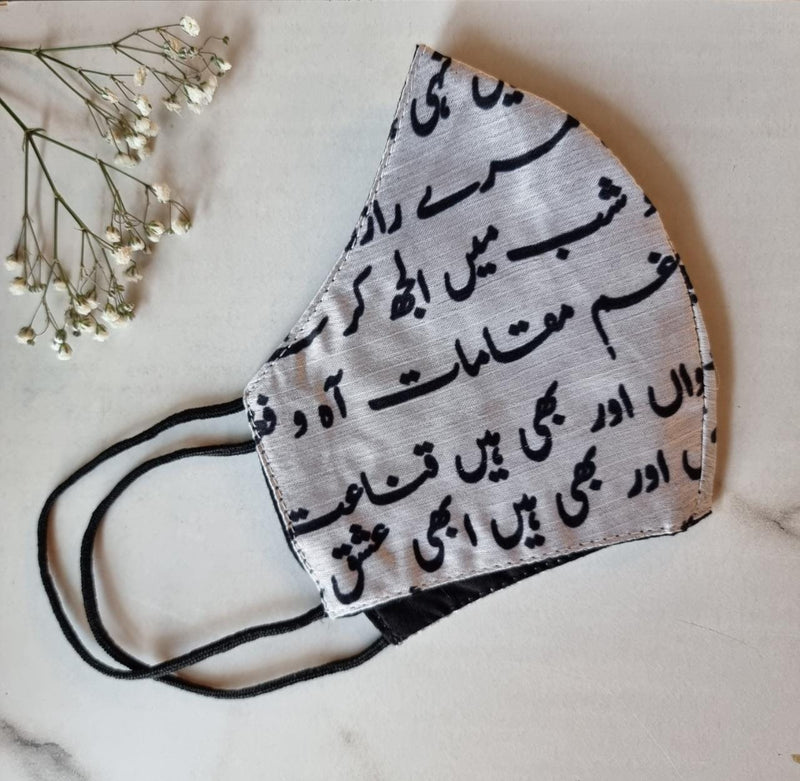 یں نہی
مرے راز
و شب میں الجھ کر
غم مقامات آہ و ف
واں اور بھی ہیں قناعت
ں اور بھی ہیں ابھی عشق